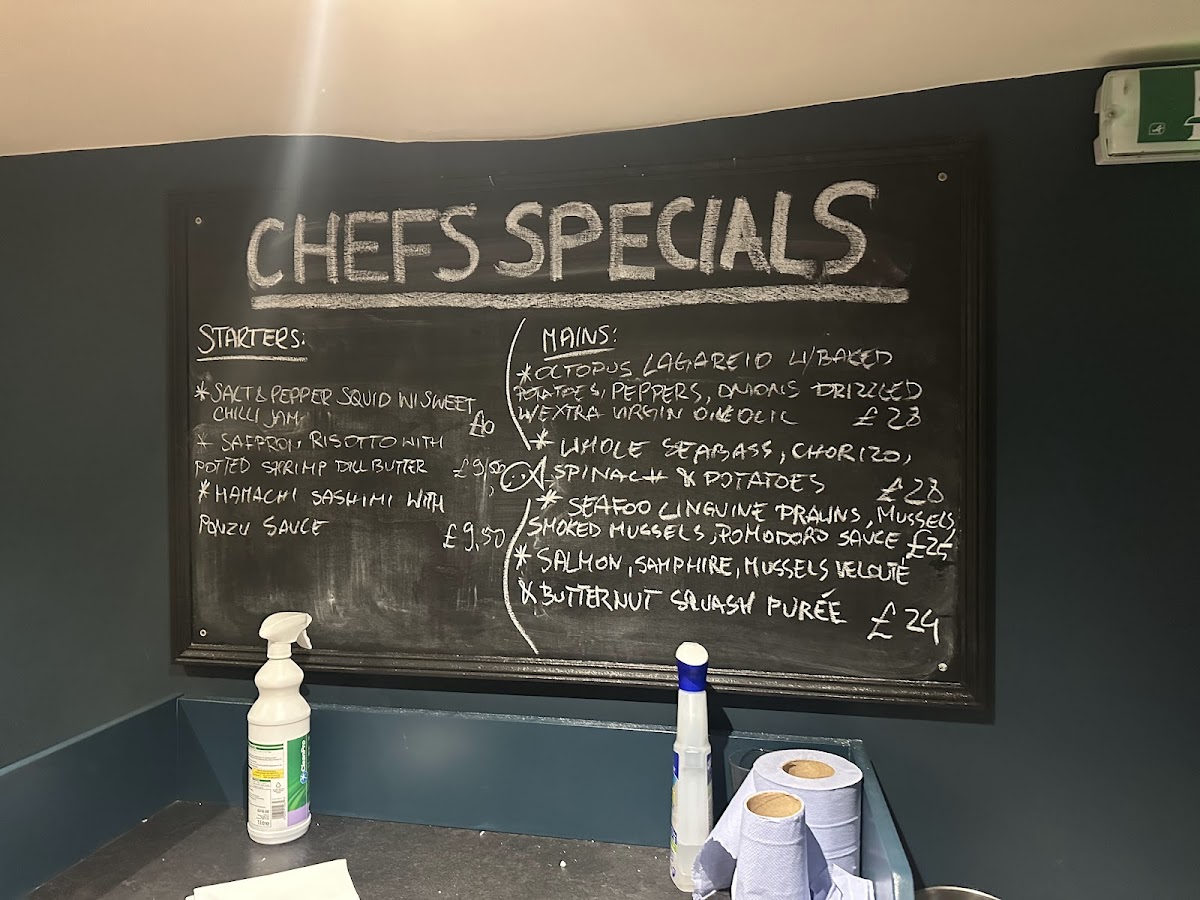 CHEFS SPECIALS
STARTERS:
* SALT & PEPPER SQUID W/ SWEET
CHILLI JAM
* SAFFRON RISOTTO WITH
POTTED SHRIMP DILL BUTTER £9,50
* HAMACHI SASHIMI WITH
PONZU SAUCE £9,50
MAINS:
* OCTOPUS LAGAREIO W/BAKED
POTATOES, PEPPERS, ONIONS DRIZZLED
W/EXTRA VIRGIN OIL £28
* WHOLE SEABASS, CHORIZO,
SPINACH & POTATOES £28
* SEAFOO LINGUINE PRAWNS, MUSSELS,
SMOKED MUSSELS, POMODORO SAUCE £25
* SALMON, SAMPHIRE, MUSSELS VELOUTÉ
& BUTTERNUT SQUASH PURÉE £24
CleanPro